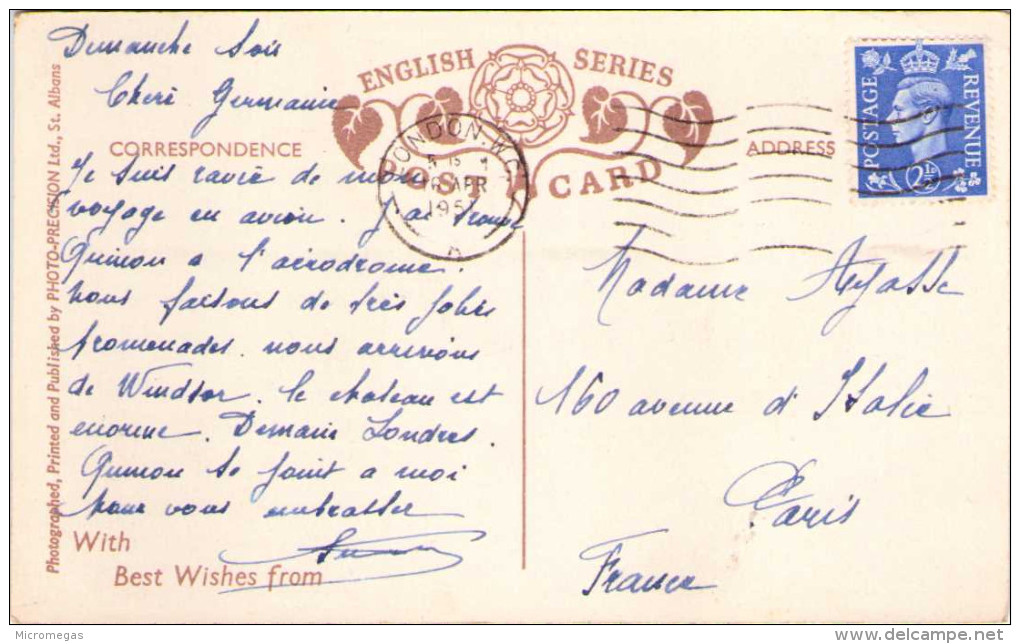 Dimanche Soir
Cheri Germaine
ENGLISH SERIES
POST CARD
CORRESPONDENCE
ADDRESS
POSTAGE
REVENUE
2½
LONDON. W.C.
16 APR
195
Je suis ravie de mon
voyage en avion. J'ai trouvé
a l'aérodrome.
nous faisons de très jolies
promenades. nous arrivons
de Windsor. le chateau est
enorme. Demain Londres.
se joint a moi
pour vous embrasser
With
Best Wishes from
Photographed, Printed and Published by PHOTO-PRECISION Ltd., St. Albans
Madame Ayasse
160 avenue d'Italie
Paris
France
Micromegas
delcampe.net